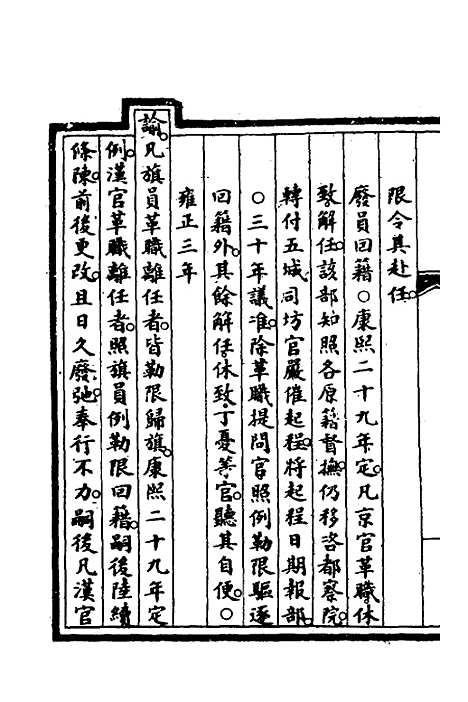 限令其赴任。
廢員回籍○康熙二十九年定。凡京官革職休
致解任。該部知照各原籍督撫。仍移咨都察院。
轉付五城司坊官嚴催起程。將起程日期報部。
○三十年議准。除革職提問官照例勒限驅逐
回籍外。其餘解任休致丁憂等官。聽其自便。○
雍正三年
諭。凡旗員革職離任者。皆勒限歸旗。康熙二十九年定
例。漢官革職離任者。照旗員例勒限回籍。嗣後陸續
條陳。前後更改。且日久廢弛。奉行不力。嗣後凡漢官